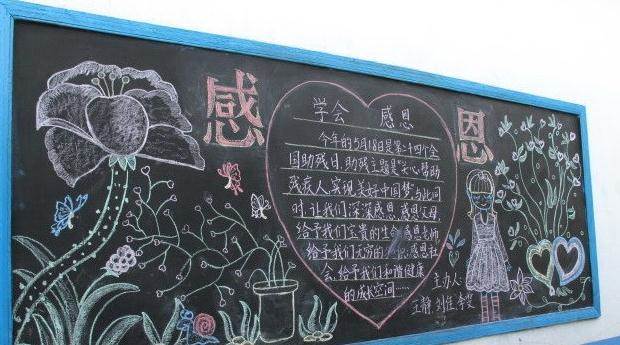 感
恩
学会 感恩
今年的5月18日是第二十四个全
国助残日,助残主题是"关心帮助
残疾人,实现美好中国梦",与此同
时,让我们深深感恩,感恩父母,
给予我们宝贵的生命,感恩老师
给予我们无穷的知识,感恩社
会,给予我们和谐健康
的成长空间……
主办人:
王静,刘佳,李莹